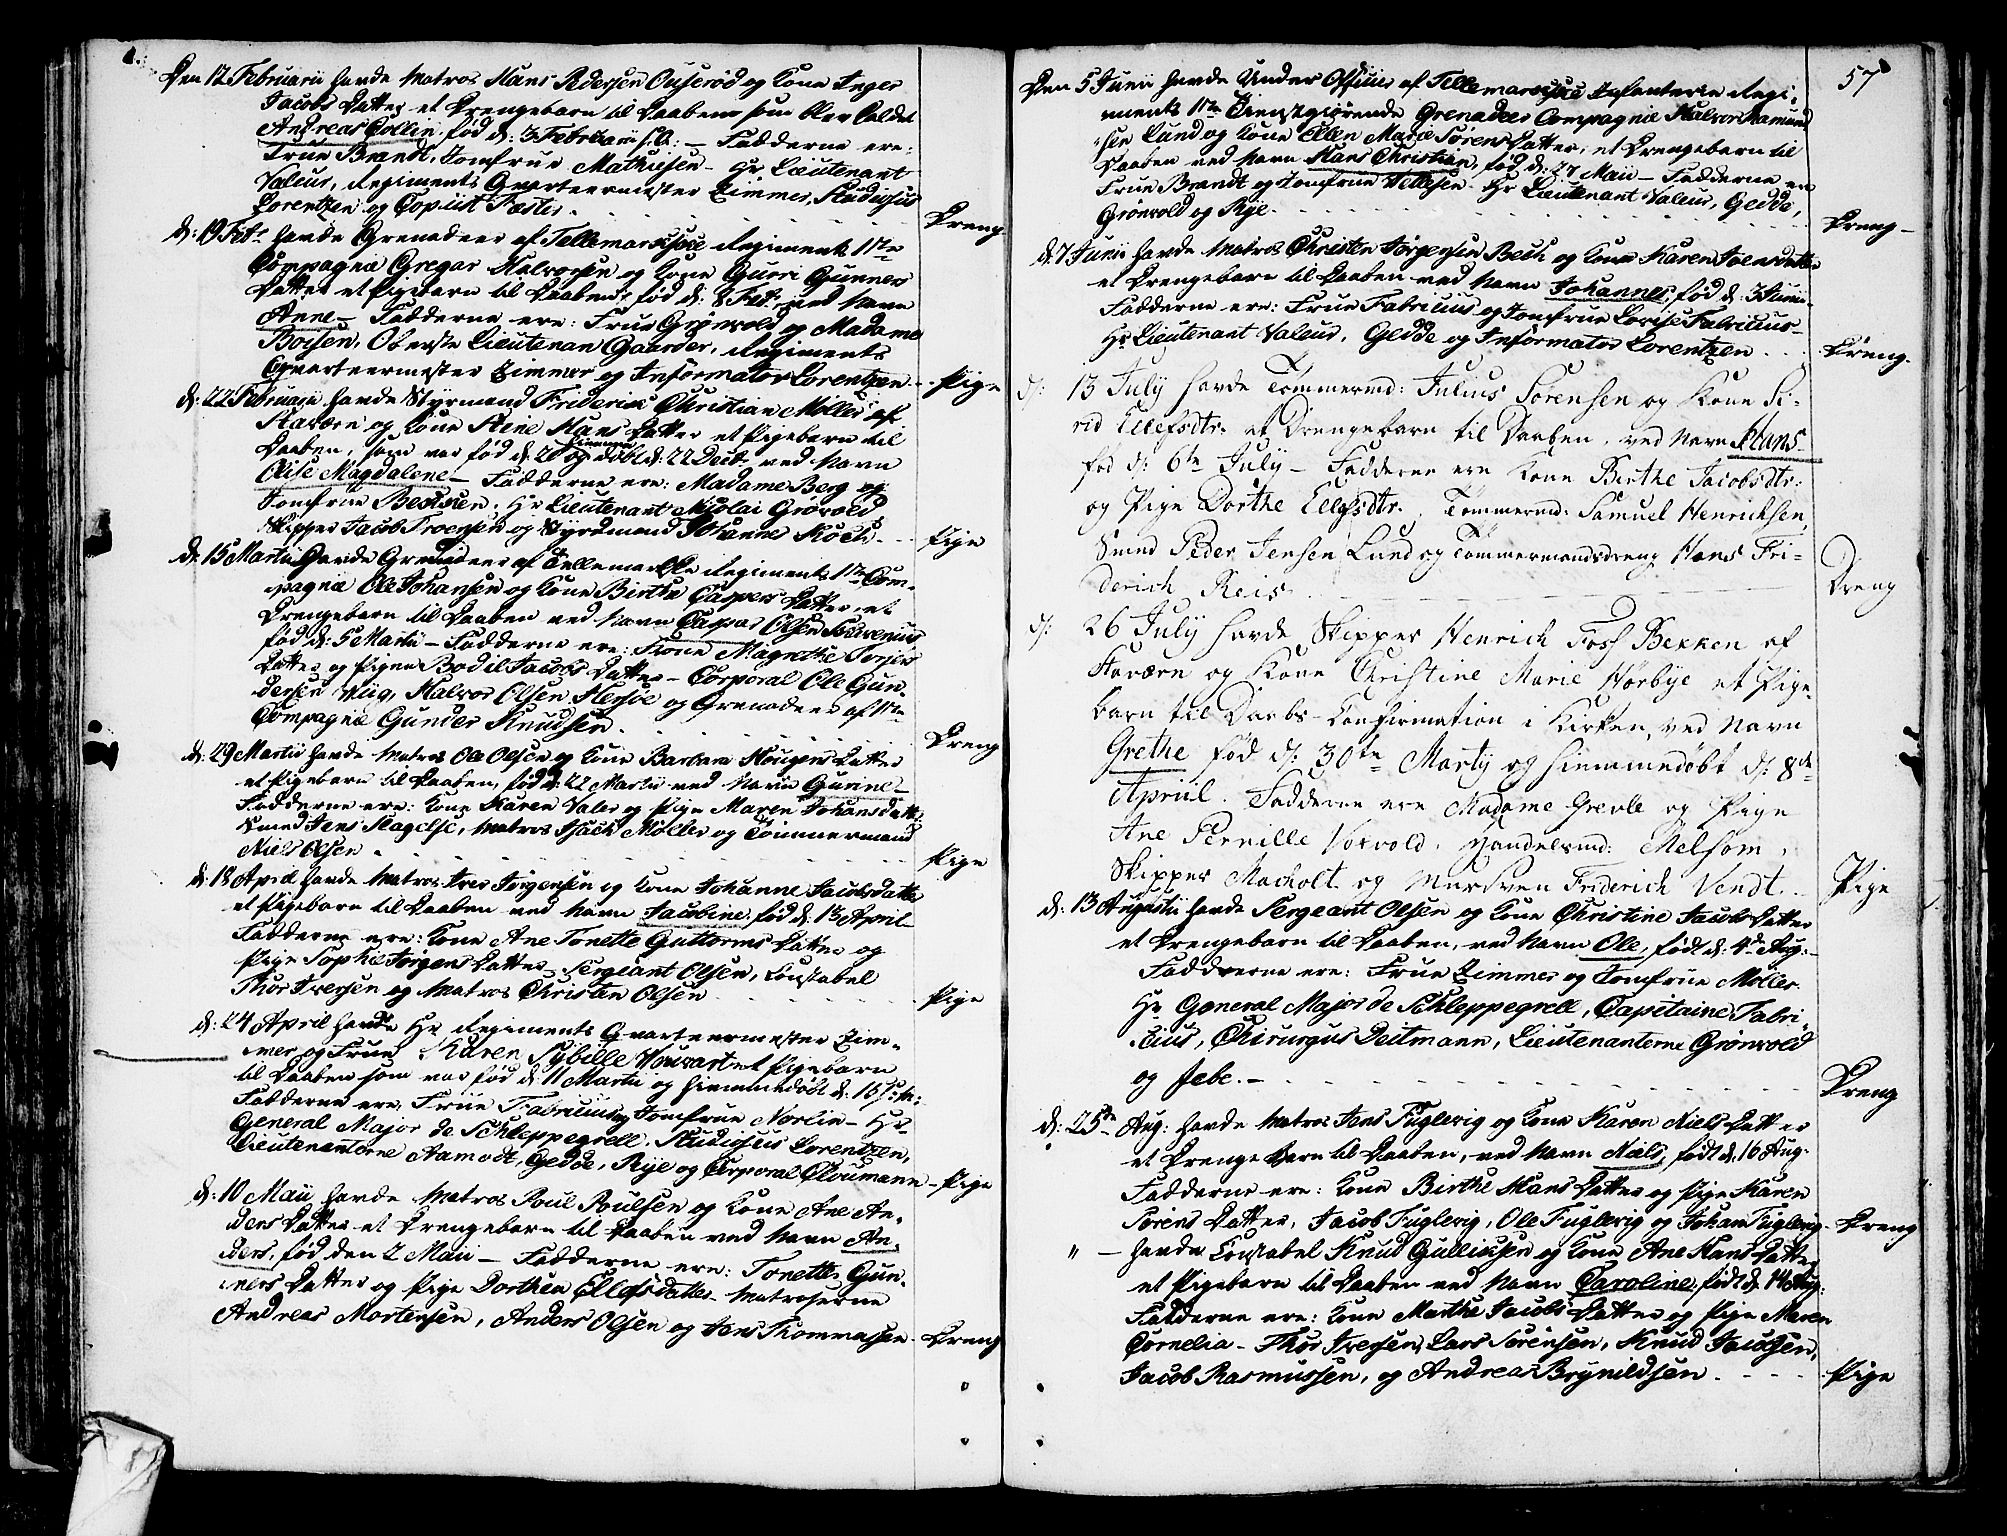 Den 12 Februarii havde Matros Hans Pedersen Ouserød og Kone Inger
Jacobs Datter et Drengebarn til Daaben som blev kaldet
Andreas Collin, fød d: 3 Februarii s. A: – Fadderne ere:
Frue Brandt, Jomfrue Mathiesen – Hr Lieutenant
Valeur, Regiments Qvarteermester Zimmer, Studiosus
Lorentzen og Copiist Fæster.
Dreng
d: 19 Febr havde Grenadeer af Tellemarkske Regiments 1ste
Compagnie Gregar Halvorsen og Kone Guori Gunners
Datter et Pigebarn til Daaben, fød d: 8 Feb: ved Navn
Anne – Fadderne ere: Frue Grønvold og Madame
Boysen, Oberste Lieutenan Gaarder, Regiments
Qvarteermester Zimmer og Informator Lorentzen
Pige
d: 22 Februarii havde Styrmand Friderich Christian Møller af
Staværn og Kone Stene Hans Datter et Pigebarn til
Daaben, som var fød d: 20 og hiemme døbt d: 22 Decbr ved Navn
Elise Magdalene – Fadderne ere: Madame Berg og
Jomfrue Bechsen, Hr Lieutenant Nicolai Grøvold
Skipper Jacob Troensen og Styrdmand Johannes Koch
Pige
d: 15 Martii havde Grenadeer af Tellemarkske Regiments 1ste Com-
pagnie Ole Johansen og Kone Birthe Caspers Datter, et
Drengebarn til Daaben ved Navn Caspar Olsen Severenius
fød d: 5 Martii – Fadderne ere: Kone Magrethe Torjers
Datter og Pigen Bodil Jacobs Datter – Corporal Ole Gun-
dersen Wiig, Halvor Olsen Hersøe og Grenadeer af 1ste
Compagnie Gunder Knudsen.
Dreng
d: 29 Martii havde Matros Ole Olsen og Kone Barbara Hougens Datter
et Pigebarn til Daaben, fød d: 22 Martii ved Navn Gurine –
Fadderne ere: Kone Karen Valer og Pige Maren Johansdatter
Smed Jens Slagelse, Matros Isach Møller og Tømmermand
Niels Olsen
Pige
d: 18 April havde Matros Iver Jørgensen og Kone Johanne Jacobsdatter
et Pigebarn til Daaben ved Navn Jacobine, fød d: 13 April –
Fadderne ere: Kone Ane Tonette Guttorms Datter og
Pige Sophie Jørgens Datter, Sergeant Olsen, Constabel
Thor Iversen og Matros Christen Olsen
Pige
d: 24 April havde Hr Regiments Qvarteermester Zim-
mer og Frue Karen Sybille Wouvart et Pigebarn
til Daaben som var fød d: 11 Martii og hiemmedøbt d: 16
Fadderne ere: Frue Fabricius og Jomfrue Norlin – Hr
General Major de Schleppegrell, Studiosus Lorentzen,
Lieutenanterne Aamodt, Gedde, Rye og Corporal Cloumann
Pige
d: 10 Maii havde Matros Poul Poulsen og Kone Ane An-
ders Datter et Drengebarn til Daaben ved Navn An-
ders, fød den 2 Maii – Fadderne ere: Tonette Gun-
ners Datter og Pige Dorthea Ellefs Datter – Matroserne
Andreas Mortensen, Anders Olsen og Jens Thommesen
Dreng
57
Den 5 Junii havde Under Officier af Tellemarkske Infanterie Regi-
ments 1ste Tienstgiørende Grenadeer Compagnie Halvor Aamund
sen Lund og Kone Ellen Marie Sørens Datter, et Drengebarn til
Daaben ved Navn Hans Christian, fød d: 27 Maii – Fadderne ere
Frue Brandt og Jomfrue Vettesen – Hr Lieutenant Valeur, Gedde,
Grønvold og Rye.
Dreng
d: 7 Junii havde Matros Christen Jørgensen Bech og Kone Karen Joensdatter
et Drengebarn til Daaben ved Navn Johannes, fød d: 3 Junii
Fadderne ere: Frue Fabricius og Jomfrue Lovise Fabricius –
Hr Lieutenant Valeur, Gedde og Informator Lorentzen
Dreng.
d: 13 July havde Tømmermd: Julius Sørensen og Kone Si-
rid Ellefsdtr: et Drengebarn til Daaben, ved Navn Hans
fød d: 6te July – Fadderne ere Kone Birthe Jacobsdtr:
og Pige Dorthe Ellefsdtr., Tømmermd: Samuel Henrichsen,
Smed Peder Jensen Lund og Tømmermandsdreng Hans Fri-
derich Reis
Dreng
d: 26 July havde Skipper Henrich Foss Bekken af
Staværn og Kone Christine Marie Hørbye et Pige-
barn til Daabs-Confirmation i Kirken, ved Navn
Grethe fød d: 30te Marty og hiemmedøbt d: 8de
April. Fadderne ere Madame Grevle og Pige
Ane Pernille Voxvold, Handelsmd: Melsom,
Skipper Macholt og Mursven Friderich Vendt.
Pige
d: 13 Augustii havde Sergeant Olsen og Kone Christine Jacobs Datter
et Drengebarn til Daaben, ved Navn Ole, født d: 4de Aug: –
Fadderne ere: Frue Zimmer og Jomfrue Møller.
Hr General Major de Schleppegrell, Capitaine Fabri-
cius, Chirurgus Deitmann, Lieutenanterne Grønvold
og Jebe. –
Dreng
d: 25de Aug: havde Matros Jens Fuglevig og Kone Karen Niels Datter
et Drengebarn til Daaben, ved Navn Niels, født d: 16 Aug.
Fadderne ere: Kone Birthe Hans Datter og Pige Karen
Sørens Datter, Jacob Fuglevig, Ole Fuglevig og Johan Fuglevig
Dreng
" – havde Constabel Knud Gullicksen og Kone Ane Hans Datter
et Pigebarn til Daaben ved Navn Caroline, født d: 14 Aug:
Fadderne ere: Kone Marthe Jacobs Datter og Pige Maren
Cornelia – Thor Iversen, Lars Sørensen, Knud Jacobsen,
Jacob Rasmussen, og Andreas Brynildsen
Pige